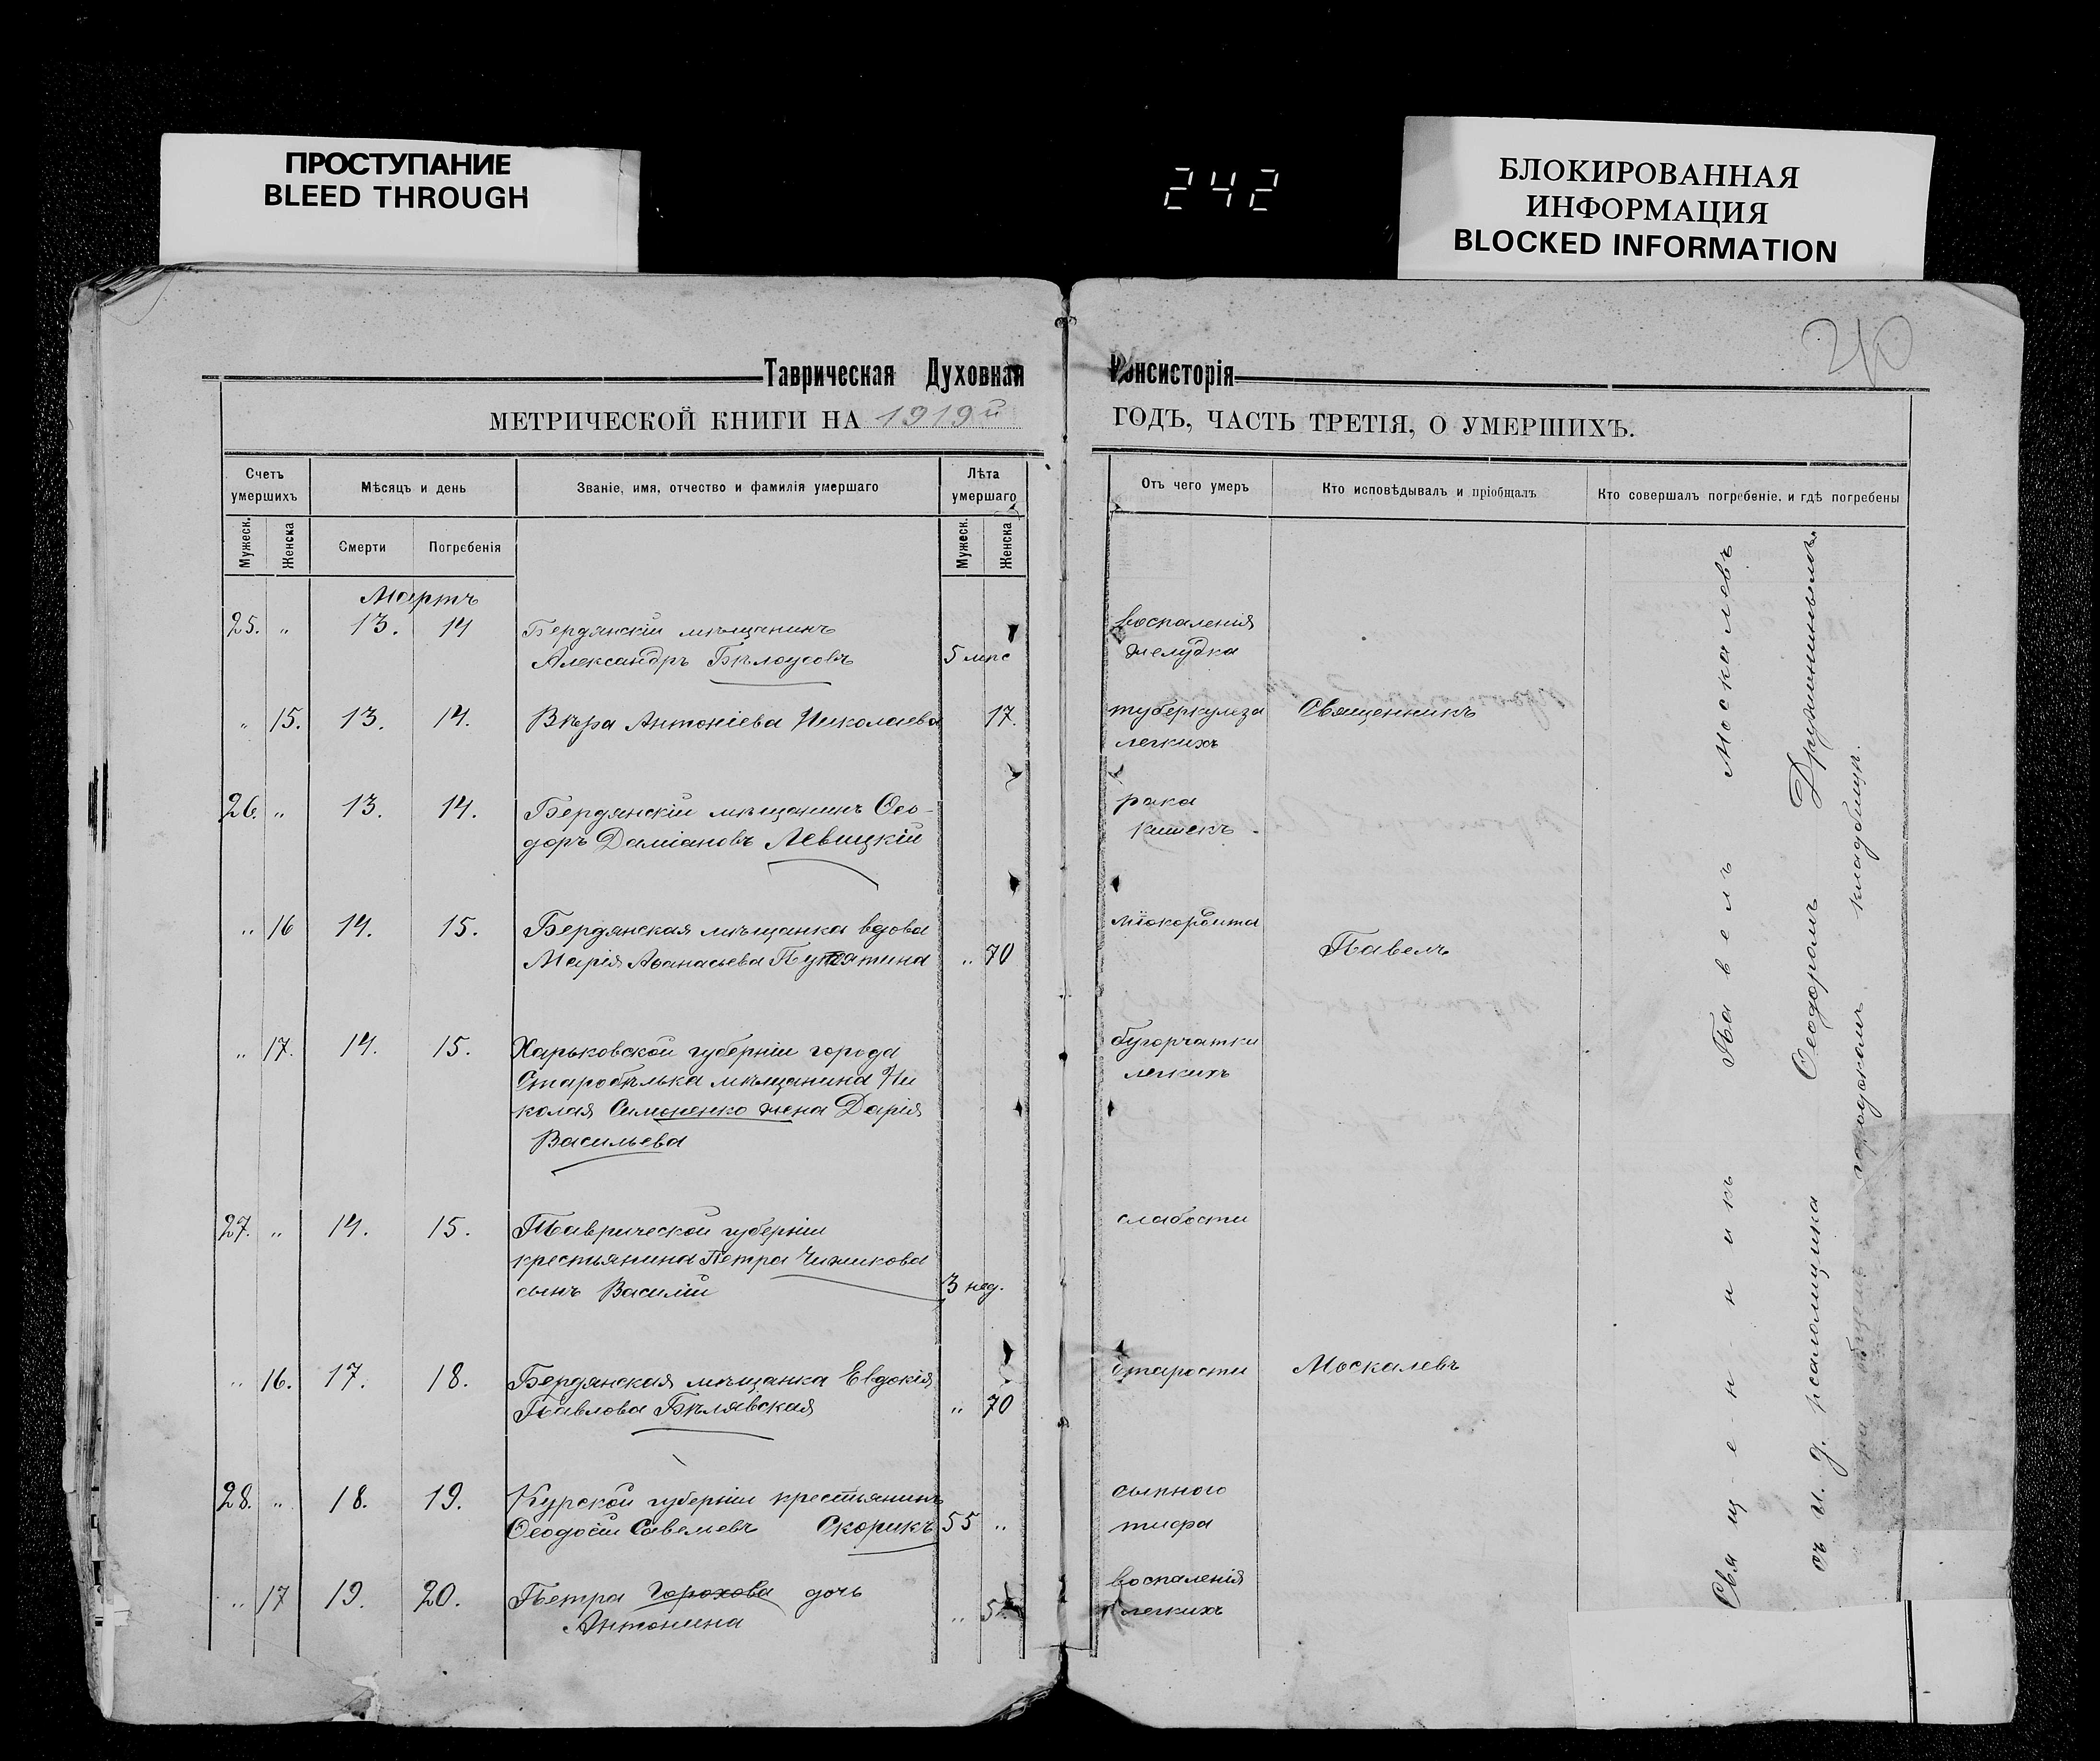 ПРОСТУПАНИЕ
BLEED THROUGH
242
БЛОКИРОВАННАЯ
ИНФОРМАЦИЯ
BLOCKED INFORMATION
Таврическая Духовная Консисторія
МЕТРИЧЕСКОЙ КНИГИ НА 1919й ГОДЪ, ЧАСТЬ ТРЕТІЯ, О УМЕРШИХЪ.
Счетъ умершихъ
Мѣсяцъ и день
Званіе, имя, отчество и фамилія умершаго
Лѣта умершаго
Отъ чего умеръ
Кто исповѣдывалъ и пріобщалъ
Кто совершалъ погребеніе. и гдѣ погребены
Мужеск.
Женска
Смерти
Погребенія
Мужеск.
Женска
Мартъ
25. „ 13. 14 Бердянскій мѣщанинъ
Александръ Бѣлоусовъ 5 мпс
воспаленія
желудка
„ 15. 13. 14. Вѣра Антоніева Николаева 17.
туберкулеза Священникъ
легкихъ
26. „ 13. 14. Бердянскій мѣщанинъ Ѳео-
доръ Даміановъ Левицкій
рака
кишекъ
„ 16 14. 15. Бердянская мѣщанка вдова
Марія Аѳанасьева Путятина „ 70
міокордита
Павелъ
„ 17. 14. 15. Харьковской губерніи города
Старобѣлька мѣщанина Ни
колая Симоненко жена Дарія
Васильева
бугорчатки
легкихъ
27. „ 14. 15. Таврической губерніи
крестьянина Петра Чижикова
сынъ Василій 3 нед.
слабости
„ 16. 17. 18. Бердянская мѣщанка Евдокія
Павлова Бѣлявская „ 70
старости Москалевъ
28. „ 18. 19. Курской губерніи крестьянинъ
Ѳеодосій Савельевъ Скорикъ 55 „
сыпного
тифа
„ 17 19. 20. Петра Горохова дочь
Антонина „ 5
воспаленія
легкихъ
Священникъ Павелъ Москалевъ
съ и. д. псаломщика Ѳеодоромъ Дружининымъ.
городскомъ кладбищѣ.